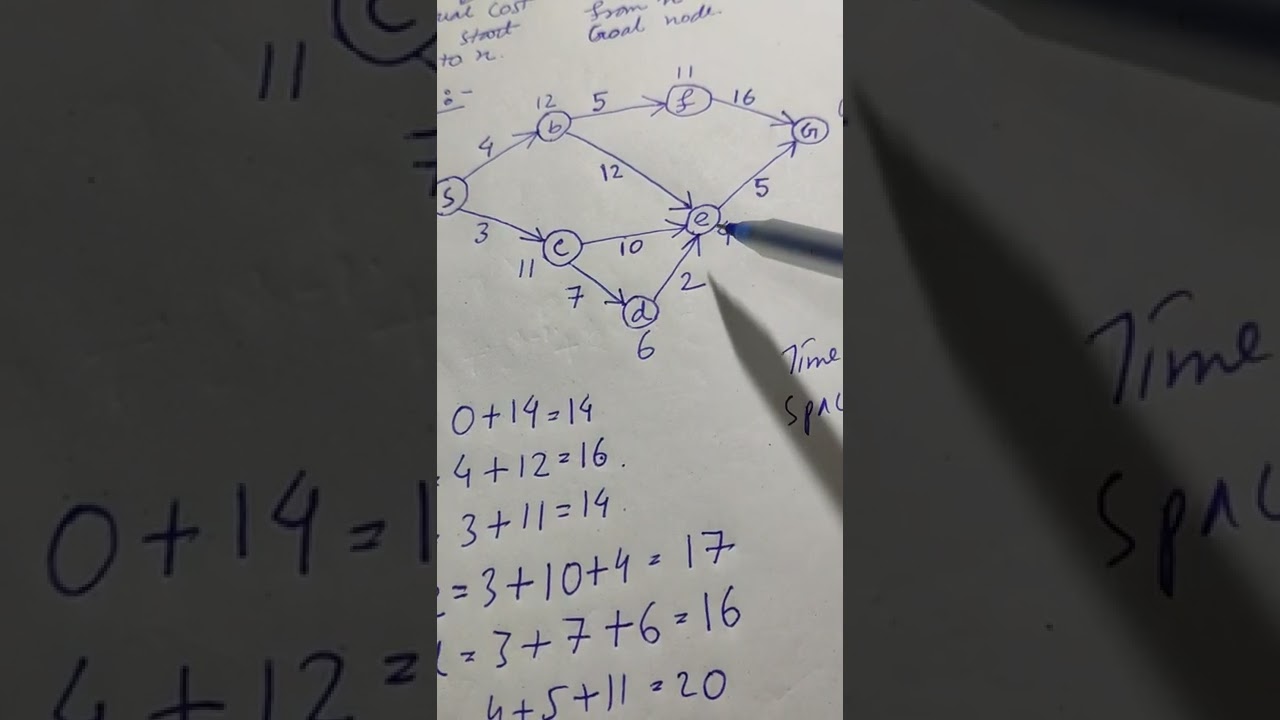 ual cost from n
start Goal node.
to n.
:-
12 5 11 16
b f G
4 12 5
S e
3 c 10 4
11 7 2
d
6
Time
0+14=14
4+12=16.
3+11=14
=3+10+4=17
=3+7+6=16
4+5+11=20